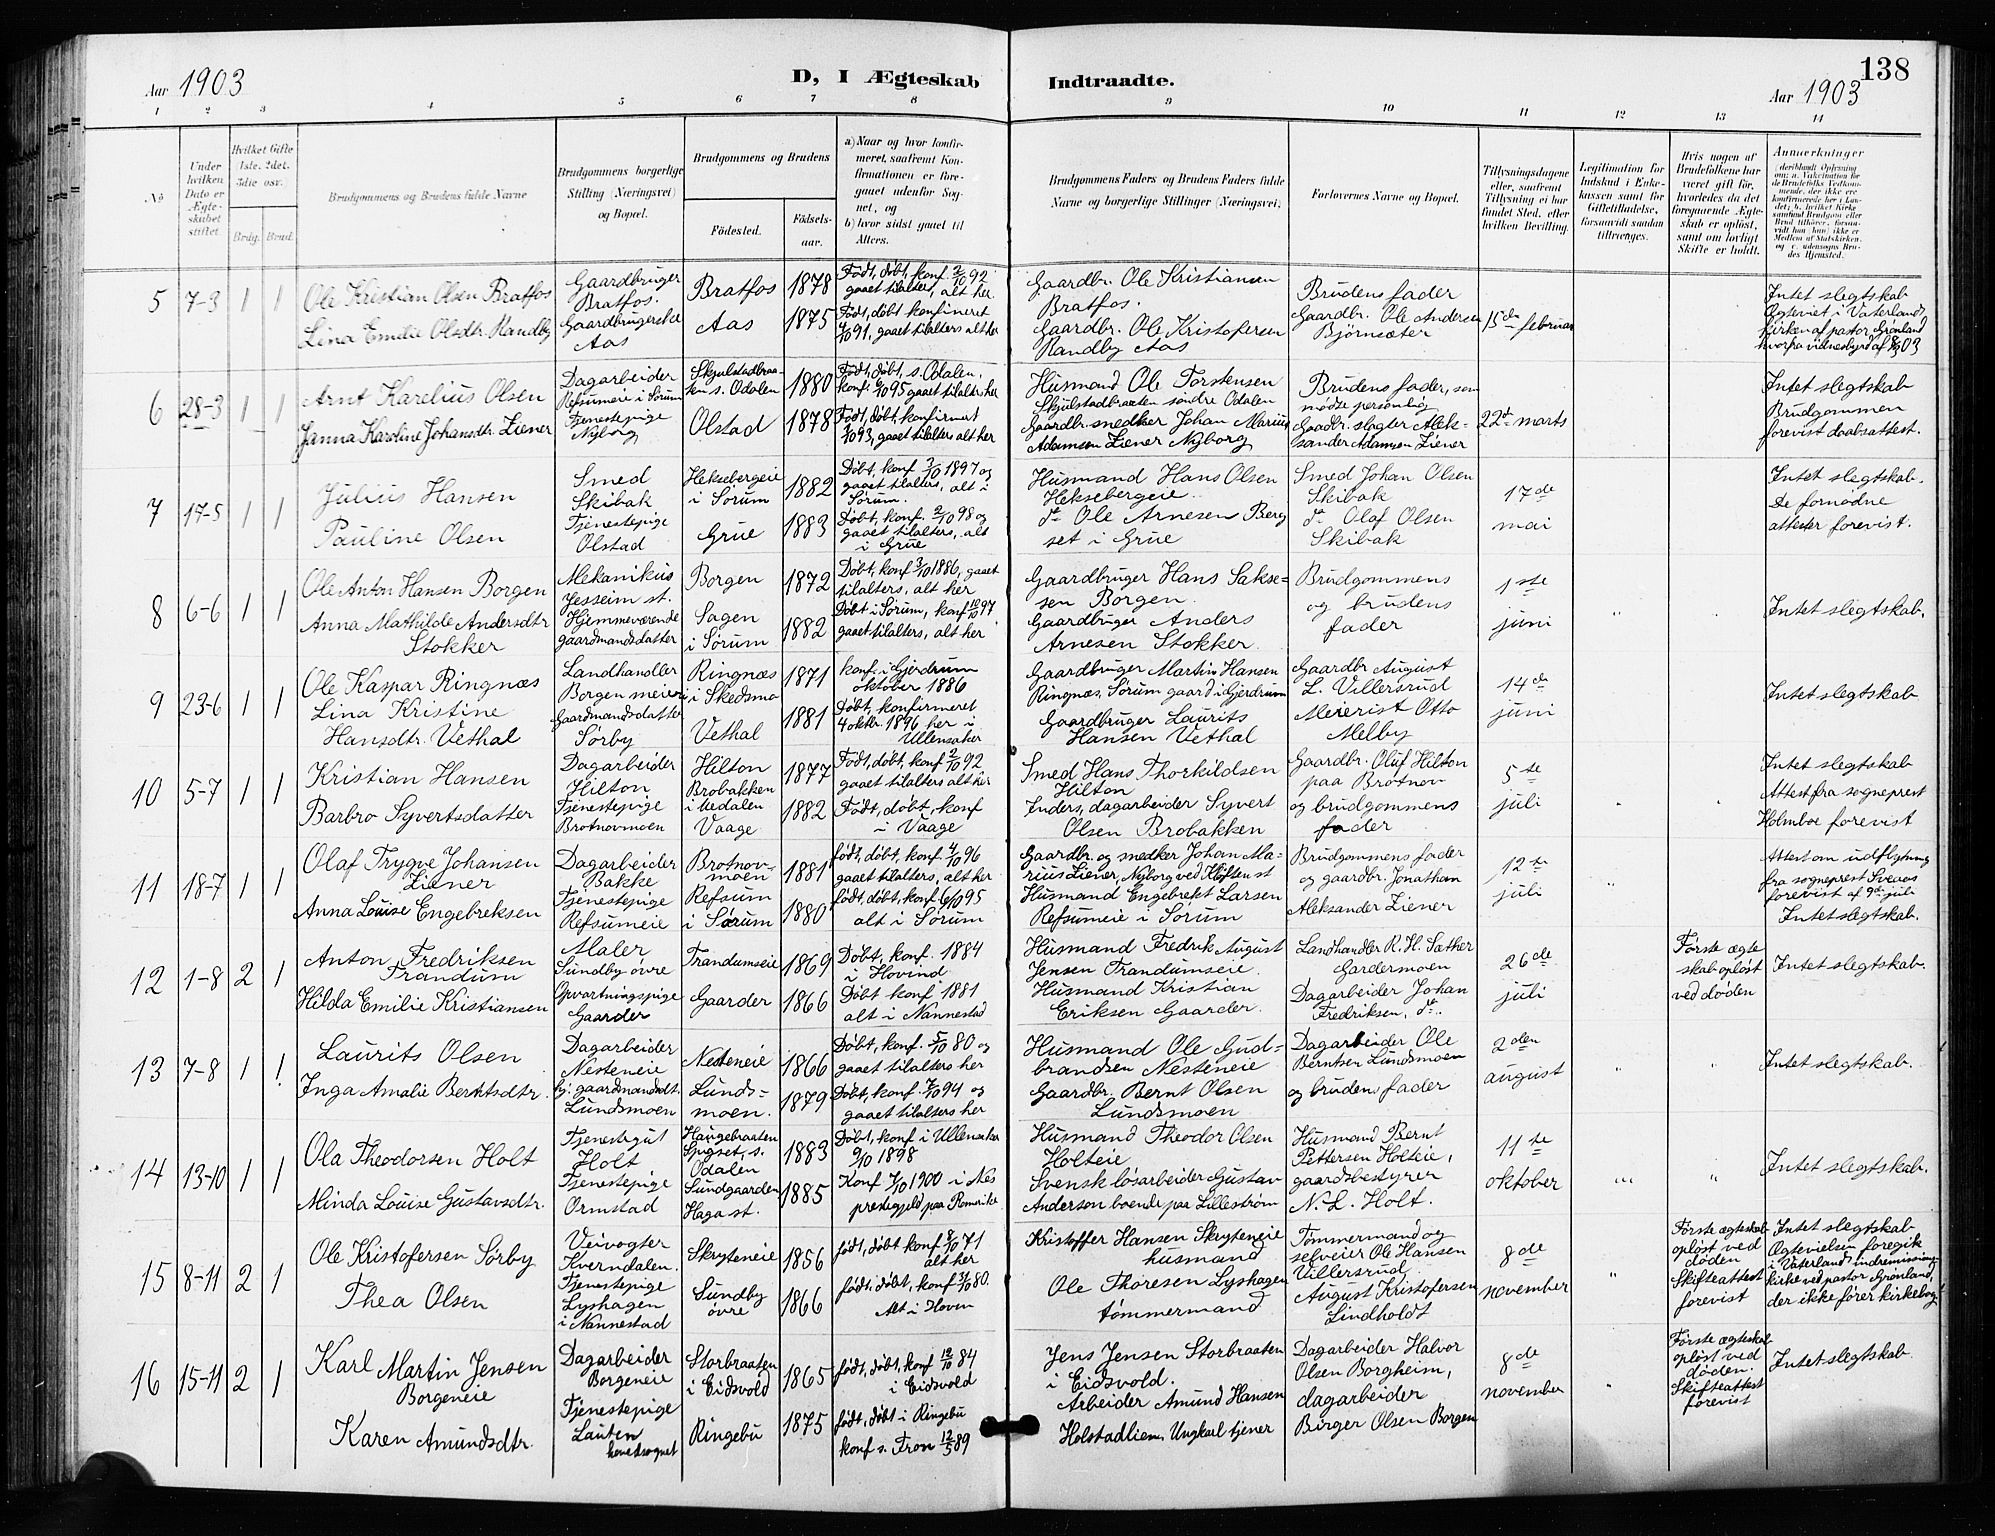 138
Aar 1903
D, I Ægteskab
Indtraadte.
Aar 1903
1 2 3 4 5 6 7 8 9 10 11 12 13 14
No
Under hvilken Dato er Ægteskabet stiftet.
Hvilket Gifte 1ste, 2det, 3die osv.
Brdg. Brud.
Brudgommens og Brudens fulde Navne
Brudgommens borgerlige Stilling (Næringsvei) og Bopæl.
Brudgommens og Brudens
Fødested.
Fødsels-aar.
a) Naar og hvor konfirmeret, saafremt Konfirmationen er foregaaet udenfor Sognet, og
b) hvor sidst gaaet til Alters.
Brudgommens Faders og Brudens Faders fulde Navne og borgerlige Stillinger (Næringsvei)
Forlovernes Navne og Bopæl.
Tillysningsdagene eller, saafremt Tillysning ei har fundet Sted, efter hvilken Bevilling.
Legitimation for Indskud i Enkekassen samt for Giftetilladelse, forsaavidt saadan tiltrænges.
Hvis nogen af Brudefolkene har været gift før, hvorledes da det foregaaende Ægteskab er opløst, samt om lovligt Skifte er holdt.
Anmærkninger
5 7-3 1 1
Ole Kristian Olsen Bratfos
Lina Emilie Olsdtr. Randby
Gaardbruger
Bratfos.
Gaardbrugerske
Aas
Bratfos
Aas
1878
1875
Født, døbt, konf. 2/10 92
gaaet tilalters, alt her.
Født, døbt konfirmeret
4/10 91, gaaet tilalters alt her
Gaardbr. Ole Kristiansen
Bratfos.
Gaardbr. Ole Kristofersen
Randby Aas
Brudens fader
Gaardbr. Ole Andersen
Bjørnsæter
15de februar
Intet slegtskab
Ægteviet i Vaterlands
kirken af pastor Grønland
hvorfra vidnesbyrd af 8/3 03
6 28-3 1 1
Arnt Karelius Olsen
Janna Karoline Johansdtr. Ziener
Dagarbeider
Refsumeie i Sørum
Tjenestepige
Nyborg
Skjulstadbraa-
ten s. Odalen
Olstad
1880
1878
Født, døbt, s. Odalen,
konf. 6/10 95 gaaet tilalters her
Født, døbt, konfirmert
1/10 93, gaaet tilalters alt her
Husmand Ole Torstensen
Skjulstadbraaten søndre Odalen
Gaardbr. snedker Johan Marius
Adamsen Ziener Nyborg
Brudens fader, som
mødte personlig
Gaardbr. slagter Alek-
sander Adamsen Ziener
22de marts
Intet slegtskab
Brudgommen
forevist daabsattest.
7 17-5 1 1
Julius Hansen
Pauline Olsen
Smed
Skibak
Tjenestepige
Olstad
Heksebergeie
i Sørum
Grue
1882
1883
Døbt, konf. 3/10 1897 og
gaaet tilalters, alt i
Sørum.
Døbt, konf. 2/10 98 og
gaaet tilalters, alt
i Grue
Husmand Hans Olsen
Heksebergeie
do Ole Arnesen Berg
set i Grue
Smed Johan Olsen
Skibak
do Olaf Olsen
Skibak
17de
mai
Intet slegtskab.
De fornødne
attester forevist.
8 6-6 1 1
Ole Anton Hansen Borgen
Anna Mathilde Andersdtr
Stokker
Mekanikus
Jesseim st.
Hjemmeværende
gaardmandsdatter
Borgen
Sagen
i Sørum
1872
1882
Døbt, konf 3/10 1886, gaaet
tilalters, alt her
Døbt i Sørum, konf 10/10 97
gaaet tilalters, alt her
Gaardbruger Hans Sakse-
sen Borgen
Gaardbruger Anders
Arnesen Stokker.
Brudgommens
og brudens
fader
1ste
juni
Intet slegtskab.
9 23-6 1 1
Ole Kaspar Ringnæs
Lina Kristine
Hansdtr. Vethal
Landhandler
Borgen meieri
Gaardmandsdatter
Sørby
Ringnæs
i Skedsmo
Vethal
1871
1881
konf. i Gjerdrum
oktober 1886
Døbt, konfirmeret
4 oktbr. 1896 her i
Ullensaker
Gaardbruger Martin Hansen
Ringnæs, Sørum gaard i Gjerdrum
Gaardbruger Laurits
Hansen Vethal
Gaardbr August
L. Villersrud
Meierist Otto
Melby
14de
juni
Intet slegtskab
10 5-7 1 1
Kristian Hansen
Barbro Syvertsdatter
Dagarbeider
Hilton
Tjenestepige
Brotnovmoen
Hilton
Brobakken
Vaage
1877
1882
Født, døbt, konf 2/10 92
gaaet tilalters alt her
Født, døbt, konf
i Vaage
Smed Hans Thorkildsen
Hilton
Inders, dagarbeider Syvert
Olsen Brobakken
Gaardbr. Oluf Hilton
paa Brotnov
og brudgommens
fader
5te
juli
Intet slegtskab
Attest fra sogneprest
Holmboe forevist
11 18-7 1 1
Olaf Trygve Johansen
Ziener
Anna Louise Engebreksen
Dagarbeider
Bakke
Tjenestepige
Refsumeie
Brotnov-
moen
Refsum
i Sørum
1881
1880
født, døbt, konf. 4/10 96
gaaet tilalters, alt her
født, døbt, konf 6/10 95
alt i Sørum
Gaardbr. og snedker Johan Ma-
rius Ziener, Nyborg ved Kløften st
Husmand Engebrekt Larsen
Refsumeie i Sørum
Brudgommens fader
og gaardbr. Jonathan
Aleksander Ziener
12te
juli
Attest om udflytning
fra sogneprest Sveaas
forevist af 9de juli
Intet slegtskab.
12 1-8 2 1
Anton Fredriksen
Trandum
Hilda Emilie Kristiansen
Maler
Sundby øvre
Opvartningspige
Gaarder
Trandumseie
Gaarder
1869
1866
Døbt, konf. 1884
i Hovind
Døbt konf 1881
alt i Nannestad
Husmand Fredrik August
Jensen Trandumseie.
Husmand Kristian
Eriksen Gaarder.
Landhandler R. H. Sæther
Gardermoen
Dagarbeider Johan
Fredriksen, do.
26de
juli
Første ægte
skab opløst
ved døden
Intet slegtskab.
13 7-8 1 1
Laurits Olsen
Inga Amalie Berntsdtr.
Dagarbeider
Nesteneie
hj: gaardmandsdt.
Lundsmoen
Nesteneie
Lunds=
moen.
1866
1879
Døbt, konf. 3/10 80 og
gaaet tilalters her
Døbt, konf. 7/10 94 og
gaaet tilalters her
Husmand Ole Gud=
brandsen Nesteneie
Gaardbr. Bernt Olsen
Lundsmoen
Dagarbeider Ole
Berntsen Lundsmoen
og brudens fader
2den
august
Intet slegtskab.
14 13-10 1 1
Ola Theodorsen Holt
Minda Louise Gustavsdtr.
Tjenestgut
Holt
Tjenestepige
Ormstad
Haugebraaten
s.
Odalen
Sundgaarden
Haga st.
1883
1885
Døbt, konf i Ullensaker
9/10 1898
Konf 7/10 1900 i Nes
prestegjeld paa Romerike
Husmand Theodor Olsen
Holteie
Svensk løsarbeider Gustav
Anderson boende paa Lillestrøm
Husmand Bernt
Pettersen Holteie,
gaardsbestyrer
N. L. Holt.
11te
oktober
Intet slegtskab.
15 8-11 2 1
Ole Kristofersen Sørby
Thea Olsen
Veivogter
Kverndalen.
Tjenestepige
Lyshagen
i Nannestad
Skryteneie
Sundby
øvre
1856
1866
født, døbt konf 8/10 71
alt her
født, døbt, konf 3/10 80.
Alt i Hovin
Kristoffer Hansen Skryteneie
husmand
Ole Thoresen Lyshagen
tømmermand
Tømmermand og
selveier Ole Hansen
Villersrud
August Kristofersen
Lindholdt
8de
november
Første ægteskab
opløst ved
døden
Skifteattest
forevist
Intet slegtskab
Ægtevielsen foregik
i Vaterland indremissions
kirke ved pastor Grønland,
der ikke fører kirkebog
16 15-11 2 1
Karl Martin Jensen
Borgeneie
Karen Amundsdtr.
Dagarbeider
Borgeneie
Tjenestepige
Lauten
hovedsognet
Storbraaten
i Eidsvold
Ringebu
1865
1875
født, døbt, konf 12/10 84
i Eidsvold
født, døbt i Ringebu
konf s. Fron 12/5 89
Jens Jensen Storbraaten
i Eidsvold.
Arbeider Amund Hansen
Holstadlien, Ungkarl tjener
Dagarbeider Halvor
Olsen Borgheim,
dagarbeider
Birger Olsen Borgen
8de
november
Første ægteskab
opløst ved
døden.
Skifteattest
forevist
Intet slegtskab.